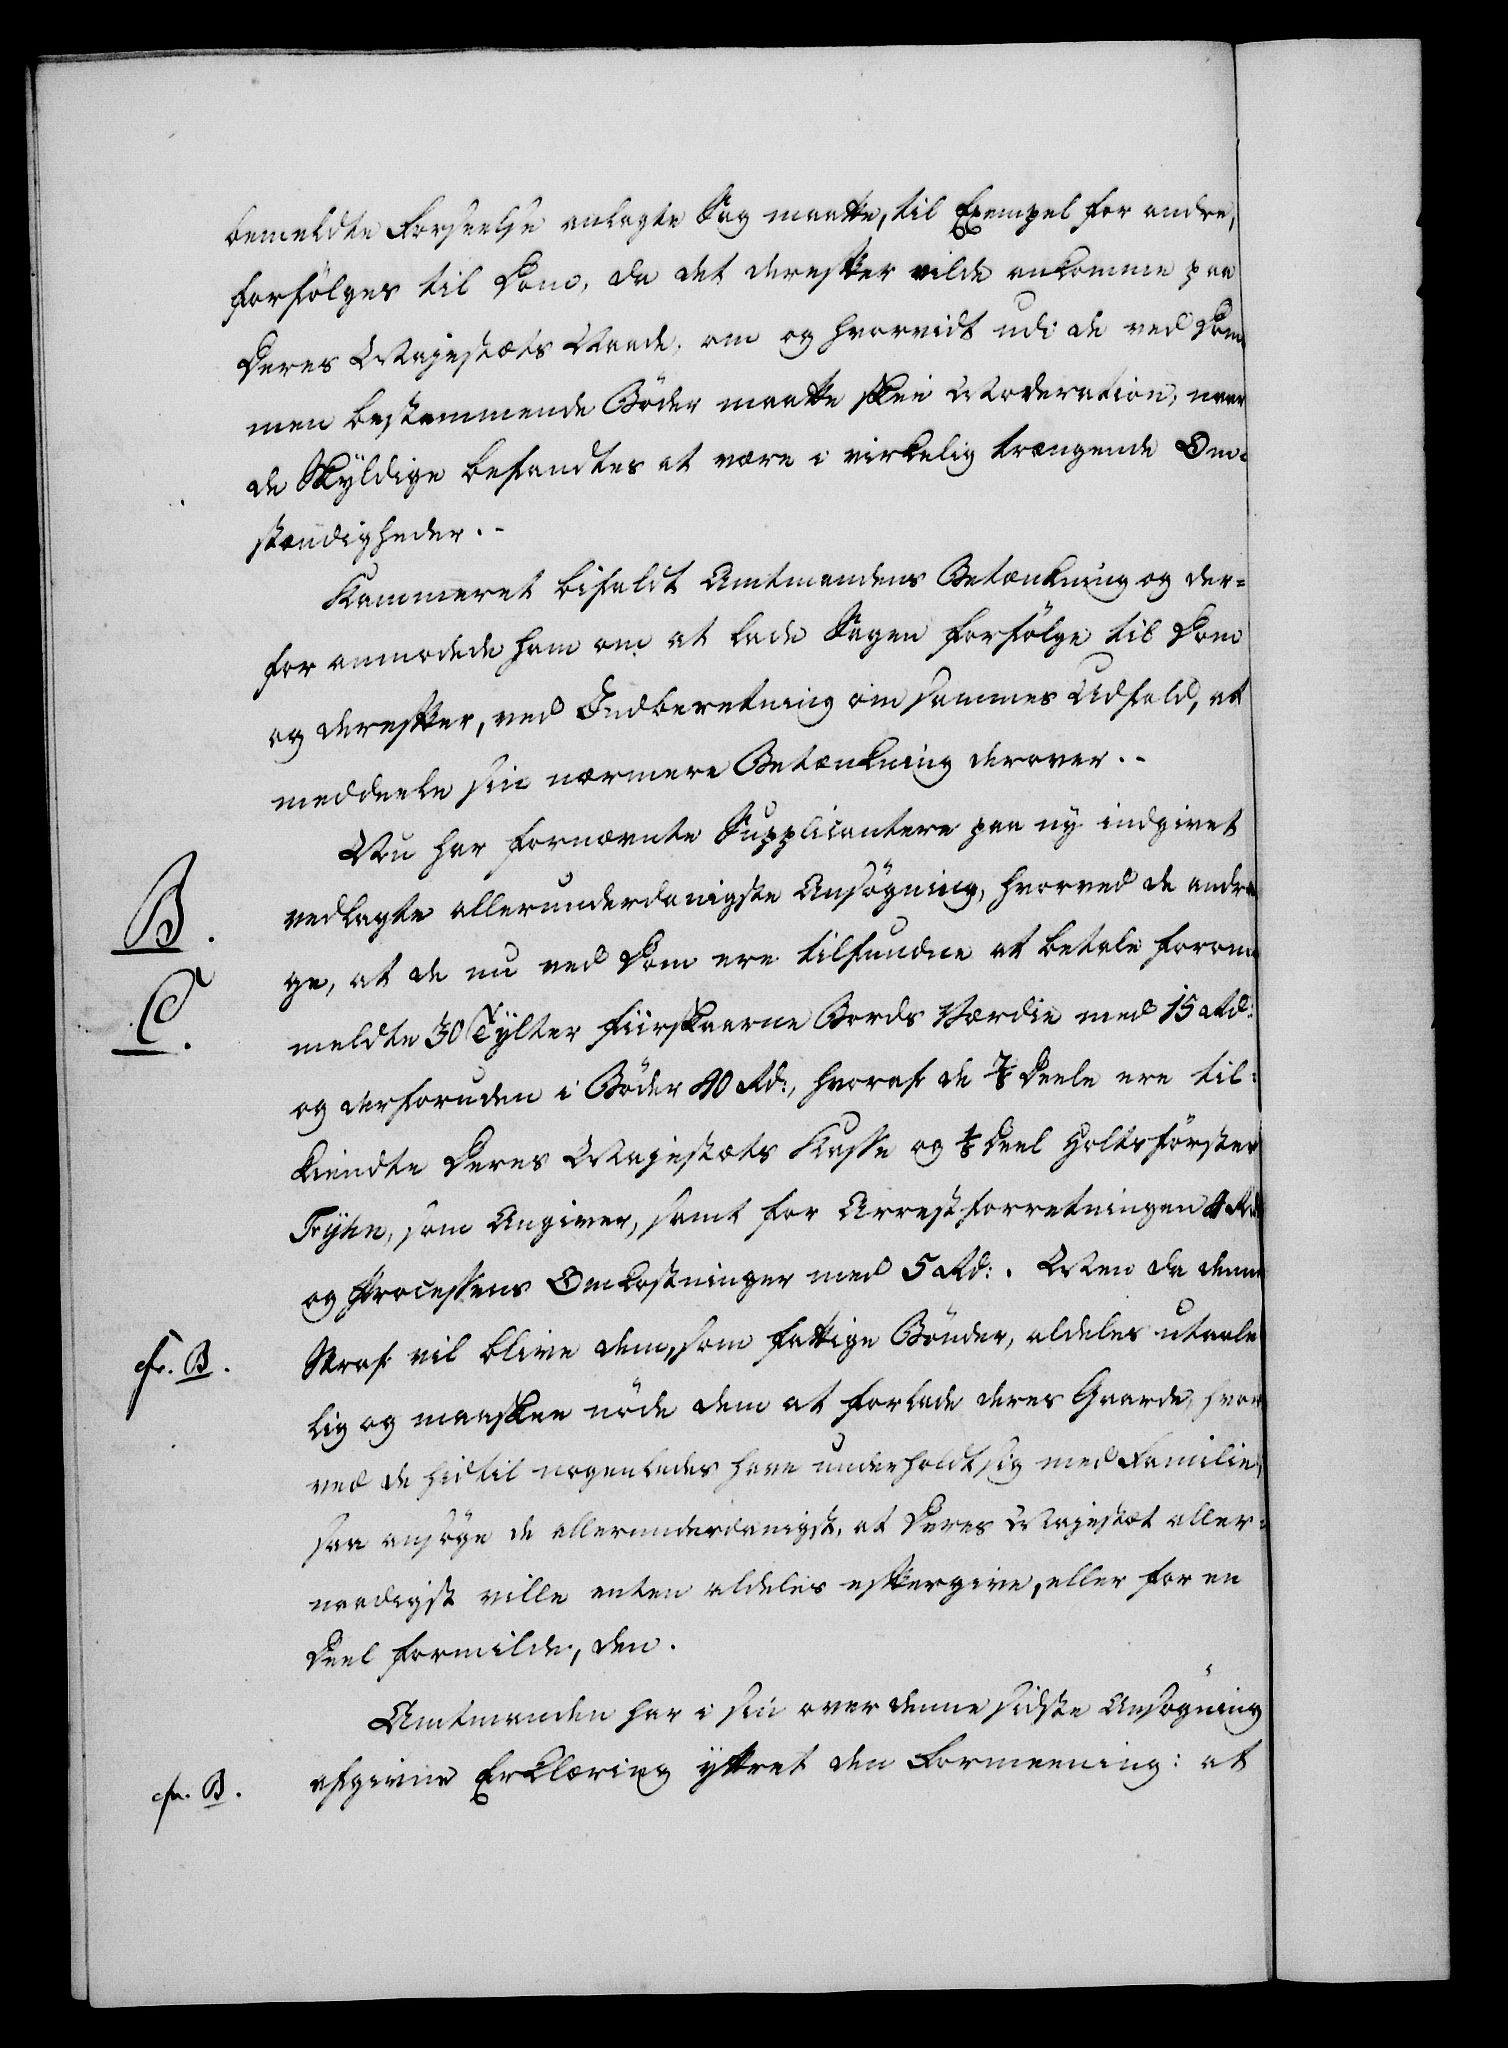 bemeldte Forseelse anlagte Sag maatte, til Exempel for andre,
forfølges til Dom, da det derefter vilde ankomme paa
Deres Majestæts Naade, om og hvorvidt udi de ved Dom
men bestemmende Bøder maatte skee Moderation, naar
de Skyldige befandtes at være i virkelig trængende Om-
stændigheder.-
Kammeret bifaldt Amtmandens Betænkning og der=
for anmodede ham om at lade Sagen forfølge til Dom
og derefter, ved Indberetning om sammes Udfald, at
meddeele sin nærmere Betænkning derover.-
Nu har fornævnte Supplicantere paa ny indgivet
B.
vedlagte allerunderdanigste Ansøgning, hvorved de andra
ge, at de nu ved Dom ere tilfundne at betale forom
C.
meldte 30 Tylter fiirskaarne Bords Værdie med 15 Rd:
og derforuden i Bøder 40 Rd:, hvoraf de 7/8 Deele ere til=
kiendte Deres Majestæts Kasse og 1/8 Deel Holtsførster
Tryhn, som Angiver, samt for Arrestforretningen 4 Rd
og Processens Omkostninger med 5 Rd:. Men da denne
cfr. B.
Straf vil blive dem, som fattige Bønder, aldeles utaale
lig og maaskee nøde dem at forlade deres Gaarde, hvor
ved de hidtil nogenledes have underholdt sig med Familie,
saa ansøge de allerunderdanigst, at Deres Majestæt aller=
naadigst ville enten aldeles eftergive, eller for en
Deel formilde, den.
Amtmanden har i sin over denne sidste Ansøgning
cfr. B.
afgivne Erklæring yttret den Formeening: at